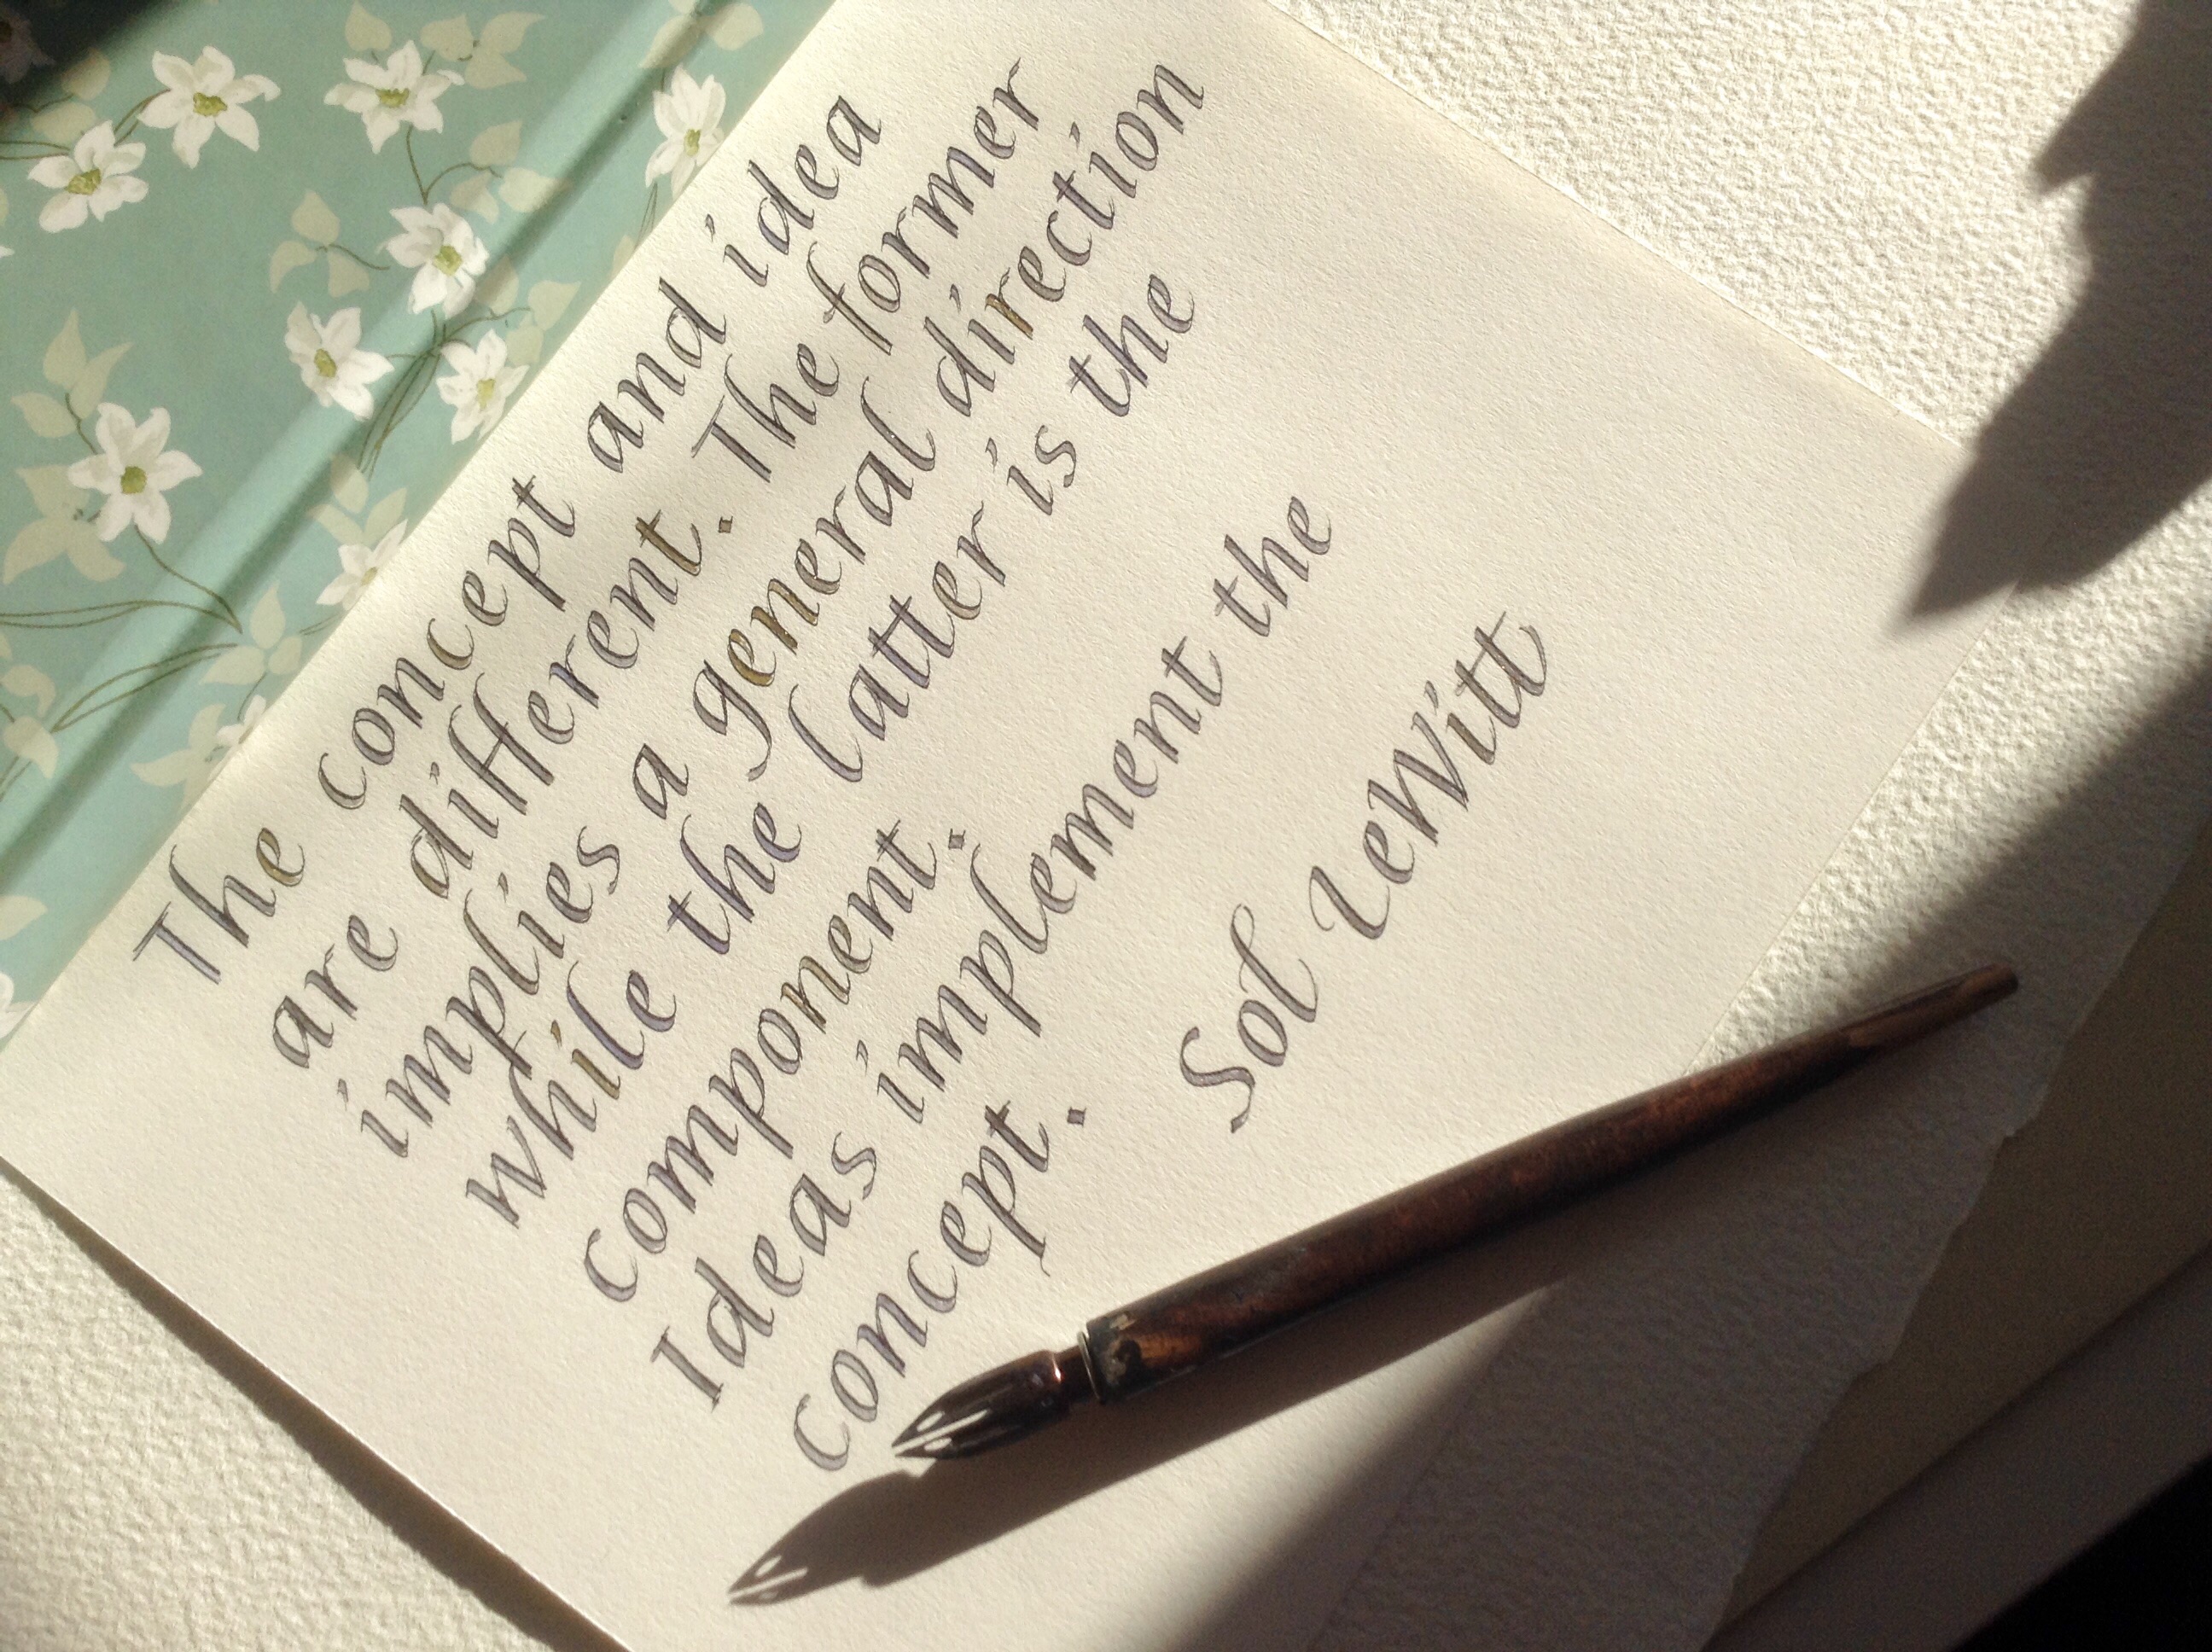 The concept and idea
are different. The former
implies a general direction
while the latter is the
component.
Ideas implement the
concept.
Sol LeWitt